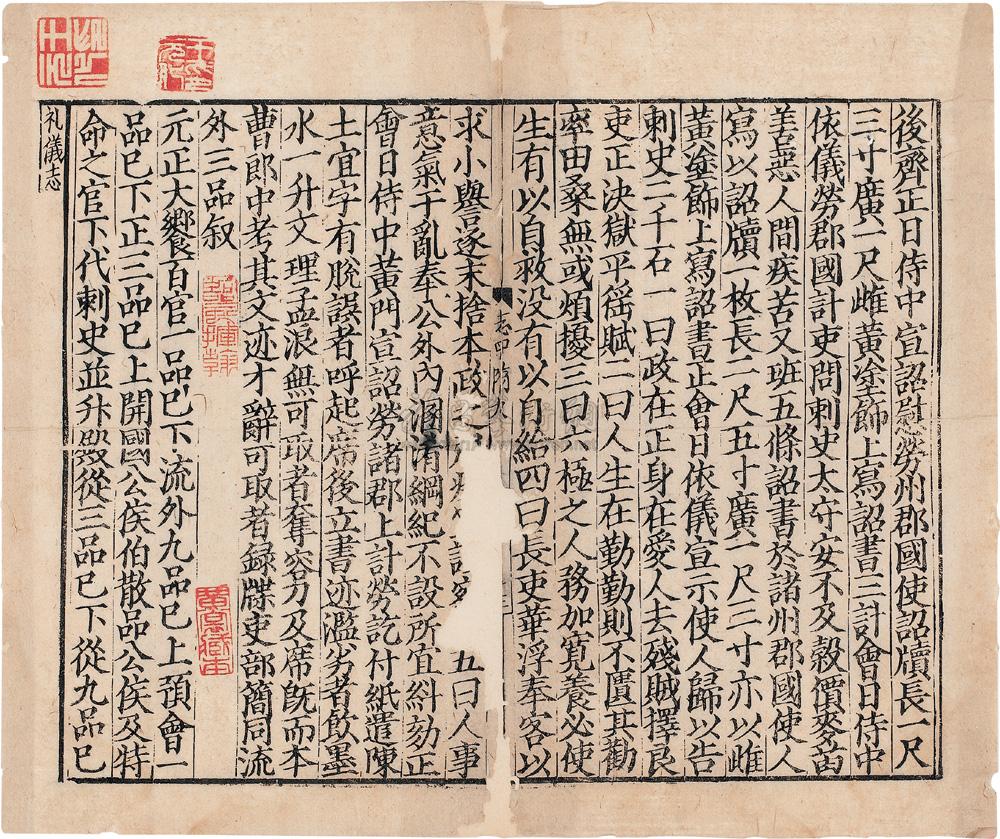 後齊正日侍中宣詔慰勞州郡國使詔牘長一尺
三寸廣一尺雌黃塗飾上寫詔書三計會日侍中
依儀勞郡國計吏問刺史太守安不及穀價麥苗
善惡人間疾苦又班五條詔書於諸州郡國使人
寫以詔牘一枚長二尺五寸廣一尺三寸亦以雌
黃塗飾上寫詔書正會日依儀宣示使人歸以告
刺史二千石一曰政在正身在愛人去殘賊擇良
吏正決獄平徭賦二曰人生在勤勤則不匱其勸
率田桑無或煩擾三曰六極之人務加寬養必使
生有以自救没有以自給四曰長吏華浮奉客以
求小譽逐末捨本政之所 五曰人事
意氣干亂奉公外內溷淆綱紀不設所宜糾劾正
會日侍中黃門宣詔勞諸郡上計勞訖付紙遣陳
土宜字有脫誤者呼起席後立書迹濫劣者飲墨
水一升文理孟浪無可取者奪容刀及席旣而本
曹郎中考其文迹才辭可取者録牒吏部簡同流
外三品叙
元正大饗百官一品已下流外九品已上預會一
品已下正三品已上開國公侯伯散品公侯及特
命之官下代刺史並升殿從三品已下從九品已
礼儀志